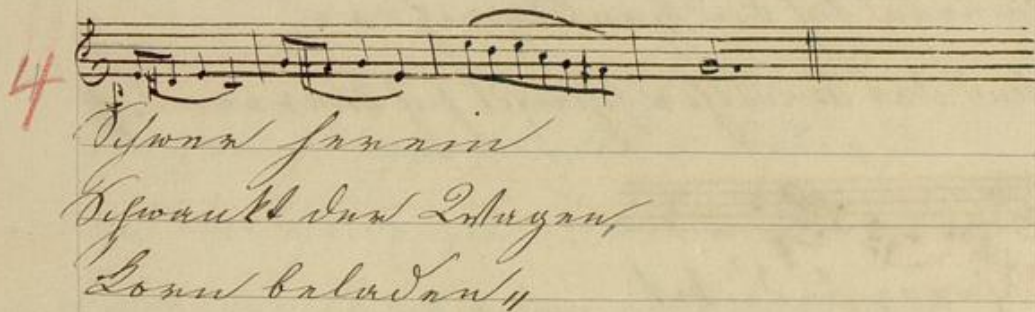 4
Schwer herein
Schwankt der Wagen,
Korn beladen,,